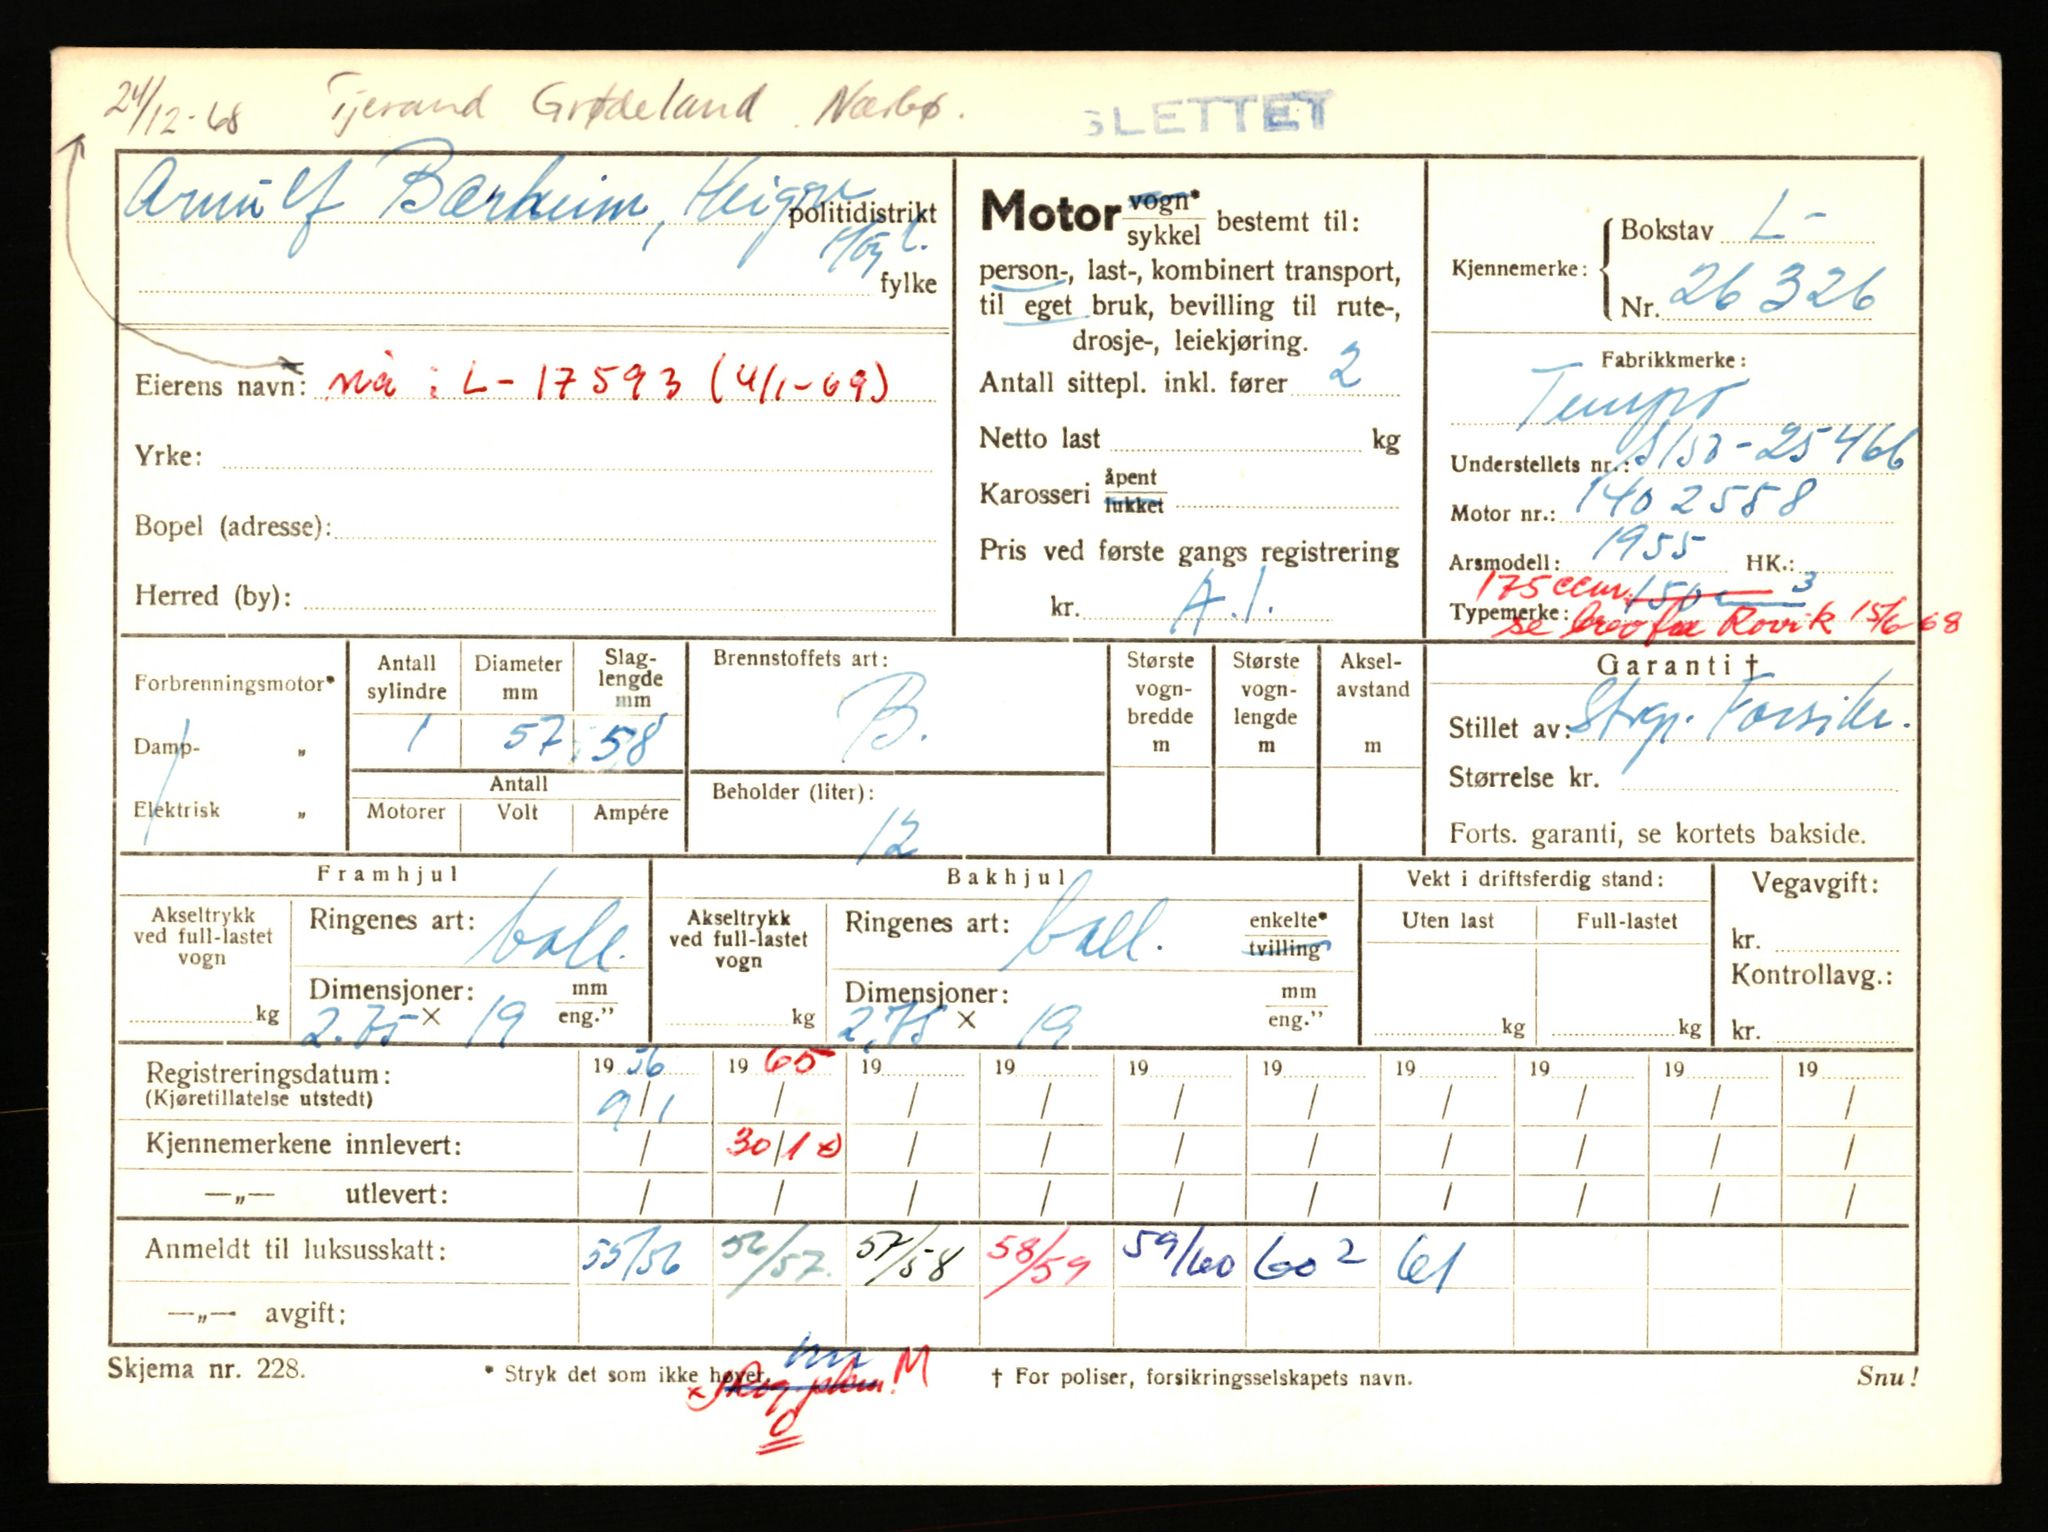 24/12-68 Tjerand Grødeland Nærbø.
SLETTET
Arnulf Bærheim, Heigre
politidistrikt
Høyl.
fylke
Eierens navn: nå: L-17593 (4/1-69)
Yrke:
Bopel (adresse):
Herred (by):
Motor vogn* sykkel bestemt til:
person-, last-, kombinert transport,
til eget bruk, bevilling til rute-,
drosje-, leiekjøring.
Antall sittepl. inkl. fører 2
Netto last kg
Karosseri åpent lukket
Pris ved første gangs registrering
kr. A.1.
Kjennemerke: Bokstav L-
Nr. 26326
Fabrikkmerke:
Tempo
Understellets nr.: S150-25466
Motor nr.: 1402558
Arsmodell: 1955 HK.:
175 ccm. 150 3
Typemerke: se brev fra Rovik 15/6 68
Forbrenningsmotor*
Damp- „
Elektrisk „
Antall sylindre
Diameter mm
Slag-lengde mm
1 57 58
Antall
Motorer Volt Ampére
Brennstoffets art:
B.
Beholder (liter):
12
Største vogn-bredde m
Største vogn-lengde m
Aksel-avstand m
Garanti †
Stillet av: Strgr. Forsikr.
Størrelse kr.
Forts. garanti, se kortets bakside.
Framhjul
Akseltrykk ved full-lastet vogn
kg
Ringenes art: ball.
Dimensjoner: mm eng."
2.75 x 19
Bakhjul
Akseltrykk ved full-lastet vogn
kg
Ringenes art: ball. enkelte* tvilling
Dimensjoner: mm eng."
2,75 x 19
Vekt i driftsferdig stand:
Uten last Full-lastet
kg kg
Vegavgift:
kr.
Kontrollavg.:
kr.
Registreringsdatum: 19 56 19 65 19 19 19 19 19 19 19 19
(Kjøretillatelse utstedt) 9/1 / / / / / / / / /
Kjennemerkene innlevert: / 30/1 x) / / / / / / / /
—„— utlevert: / / / / / / / / / /
Anmeldt til luksusskatt: 55/56 56/57. 57/58 58/59 59/60 60 2 61
—„— avgift:
Skjema nr. 228. * Stryk det som ikke høver. † For poliser, forsikringsselskapets navn. Snu!
M